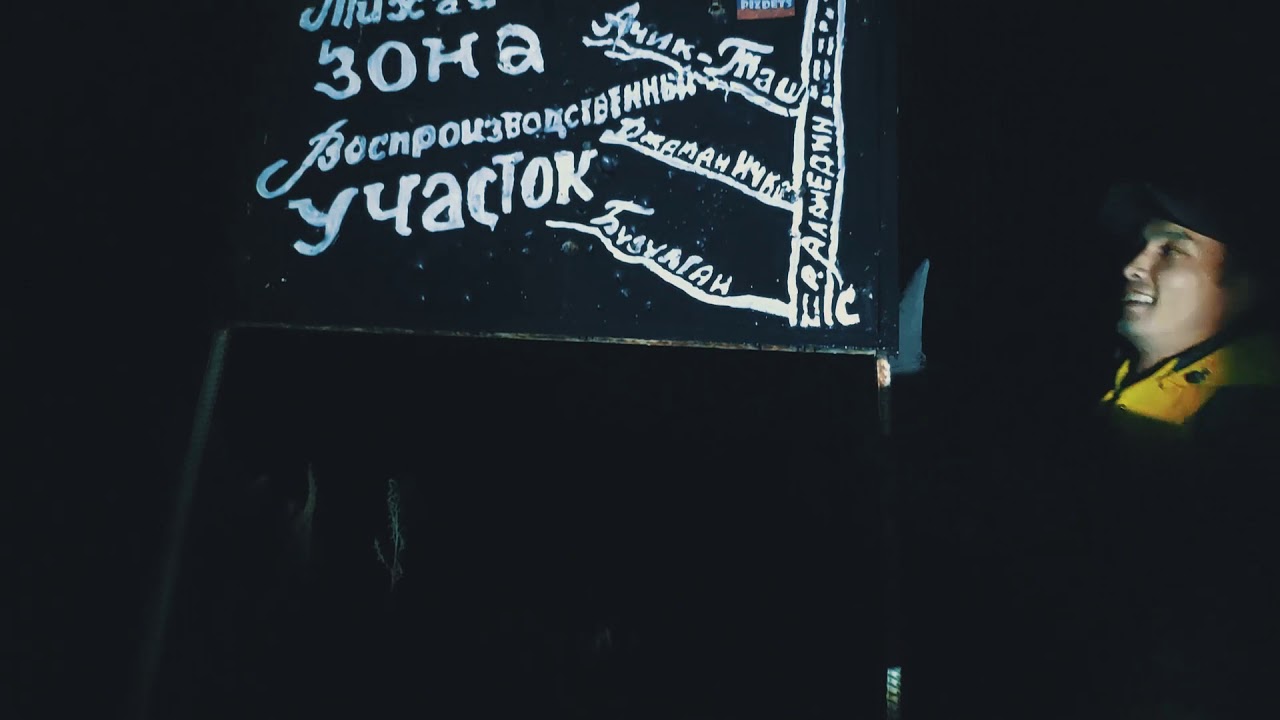 Тихая
ЗОНА
Воспроизводственный
УЧАСТОК
PIZDETS
Ачик-Таш
Джаман Ичке
Бузулган
АЛАМЕДИН
С